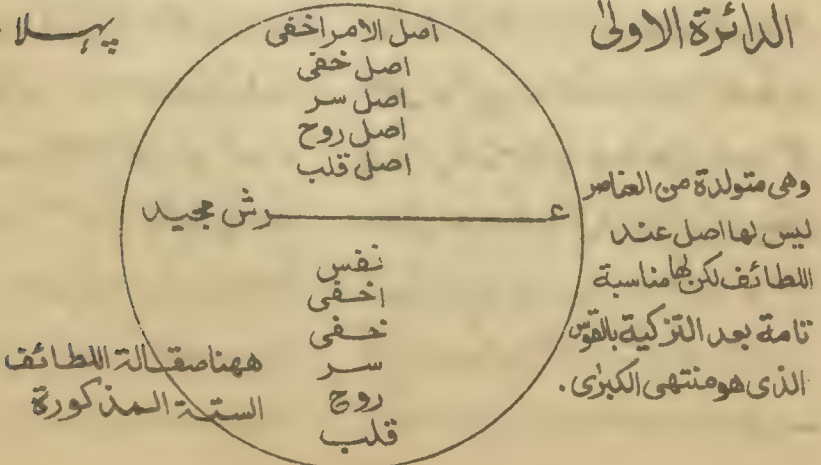 الدائرة الاولىٰ
پہلا
اصل الامراخفى
اصل خفى
اصل سر
اصل روح
اصل قلب
عرش مجيد
نفس
اخفى
خفى
سر
روح
قلب
وهى متولدة من العناصر
ليس لها اصل عند
اللطائف لكن لها مناسبة
تامة بعد التزكية بالقوس
الذى هو منتهى الكبرٰى.
ههنا صقالة اللطائف
الستة المذكورة